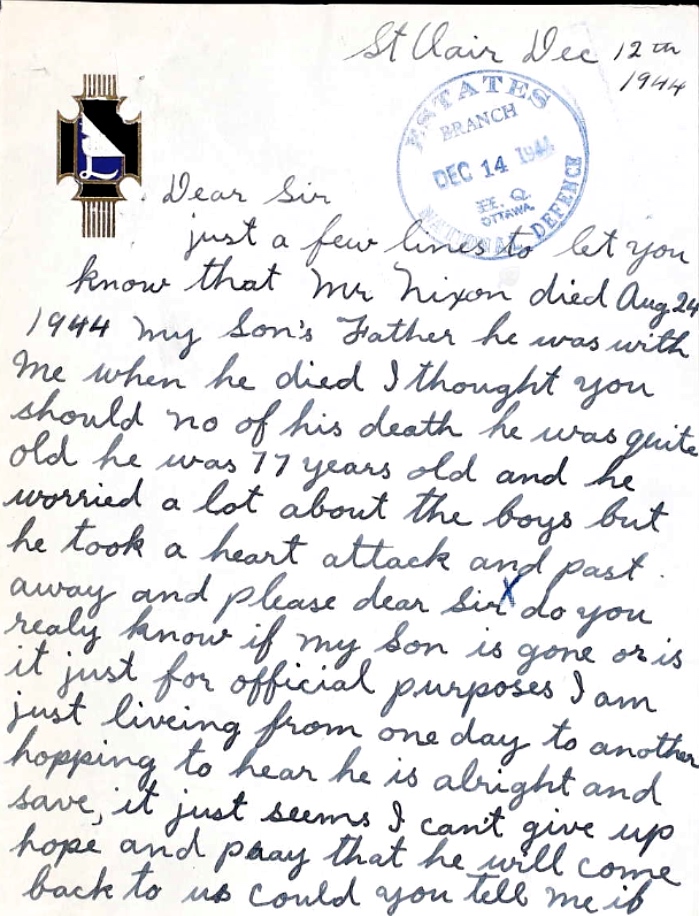 St Clair Dec 12th
1944
ESTATES
BRANCH
DEC 14 1944
H. Q.
OTTAWA
NATIONAL DEFENCE
L
Dear Sir
just a few lines to let you
know that Mr Nixon died Aug 24
1944 my Son's Father he was with
Me when he died I thought you
should no of his death he was quite
old he was 77 years old and he
worried a lot about the boys but
he took a heart attack and past
away and please dear Sir X do you
realy know if my Son is gone or is
it just for official purposes I am
just liveing from one day to another
hopping to hear he is alright and
save, it just seems I can't give up
hope and pray that he will come
back to us could you tell me if